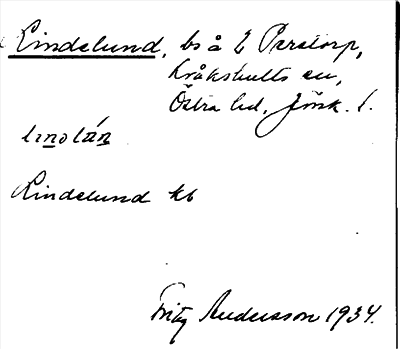 Lindelund, bs å 2 Perstorp,
Kråkshults sn,
Östra hd, Jönk. l.
linəlún
Lindelund kb
Fritz Andersson 1934.